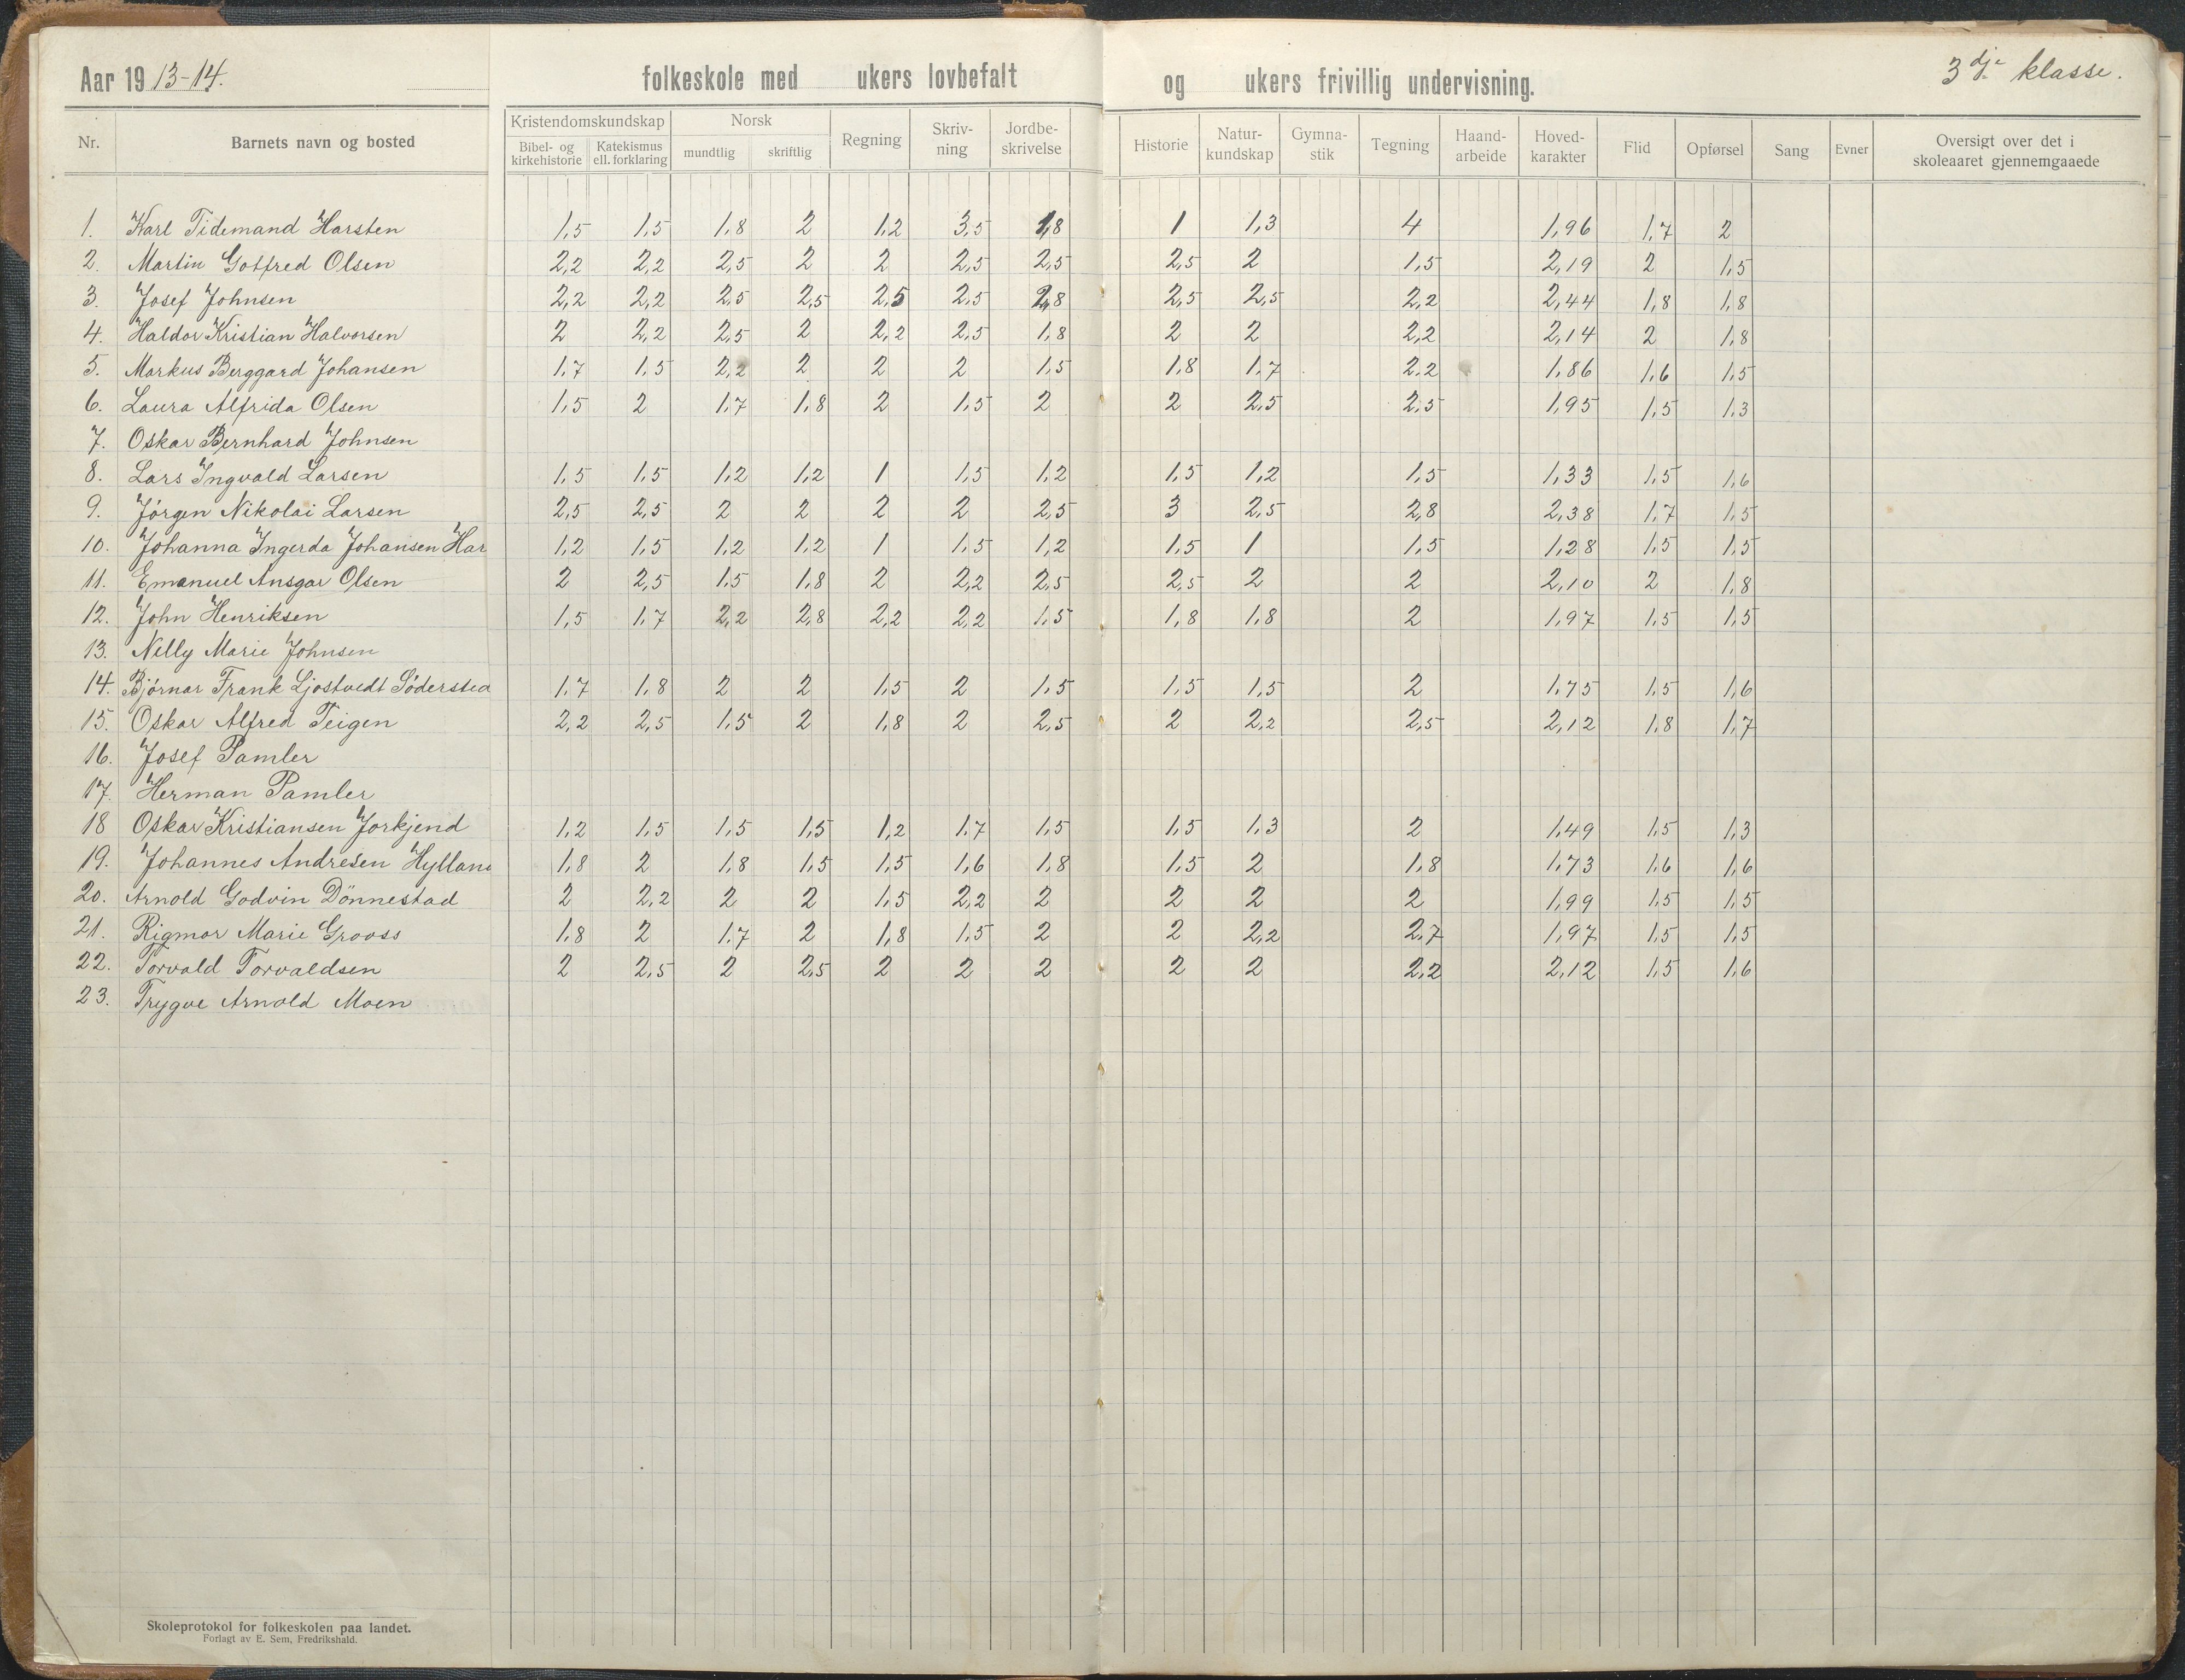 Aar 1913-14. folkeskole med ukers lovbefalt og ukers frivillig undervisning. 3dje klasse.
Nr. Barnets navn og bosted Kristendomskundskap Bibel- og kirkehistorie Katekismus ell. forklaring Norsk mundtlig skriftlig Regning Skriv-ning Jordbe-skrivelse Historie Natur-kundskap Gymna-stik Tegning Haand-arbeide Hoved-karakter Flid Opførsel Sang Evner Oversigt over det i skoleaaret gjennemgaaede
1. Karl Tidemand Harsten 1,5 1,5 1,8 2 1,2 3,5 1,8 1 1,3 4 1,96 1,7 2
2. Martin Gotfred Olsen 2,2 2,2 2,5 2 2 2,5 2,5 2,5 2 1,5 2,19 2 1,5
3. Josef Johnsen 2,2 2,2 2,5 2,5 2,5 2,5 2,8 2,5 2,5 2,2 2,44 1,8 1,8
4. Haldor Kristian Halvorsen 2 2,2 2,5 2 2,2 2,5 1,8 2 2 2,2 2,14 2 1,8
5. Markus Berggard Johansen 1,7 1,5 2,2 2 2 2 1,5 1,8 1,7 2,2 1,86 1,6 1,5
6. Laura Alfrida Olsen 1,5 2 1,7 1,8 2 1,5 2 2 2,5 2,5 1,95 1,5 1,3
7. Oskar Bernhard Johnsen
8. Lars Ingvald Larsen 1,5 1,5 1,2 1,2 1 1,5 1,2 1,5 1,2 1,5 1,33 1,5 1,6
9. Jörgen Nikolai Larsen 2,5 2,5 2 2 2 2 2,5 3 2,5 2,8 2,38 1,7 1,5
10. Johanna Ingerda Johansen Har 1,2 1,5 1,2 1,2 1 1,5 1,2 1,5 1 1,5 1,28 1,5 1,5
11. Emanuel Ansgar Olsen 2 2,5 1,5 1,8 2 2,2 2,5 2,5 2 2 2,10 2 1,8
12. John Henriksen 1,5 1,7 2,2 2,8 2,2 2,2 1,5 1,8 1,8 2 1,97 1,5 1,5
13. Nelly Marie Johnsen
14. Björnar Frank Ljostvedt Södersted 1,7 1,8 2 2 1,5 2 1,5 1,5 1,5 2 1,75 1,5 1,6
15. Oskar Alfred Teigen 2,2 2,5 1,5 2 1,8 2 2,5 2 2,2 2,5 2,12 1,8 1,7
16. Josef Pamler
17. Herman Pamler
18 Oskar Kristiansen Jorkjend 1,2 1,5 1,5 1,5 1,2 1,7 1,5 1,5 1,3 2 1,49 1,5 1,3
19. Johannes Andresen Hylland 1,8 2 1,8 1,5 1,5 1,6 1,8 1,5 2 1,8 1,73 1,6 1,6
20. Arnold Godvin Dönnestad 2 2,2 2 2 1,5 2,2 2 2 2 2 1,99 1,5 1,5
21. Rigmor Marie Grooss 1,8 2 1,7 2 1,8 1,5 2 2 2,2 2,7 1,97 1,5 1,5
22. Torvald Torvaldsen 2 2,5 2 2,5 2 2 2 2 2 2,2 2,12 1,5 1,6
23. Trygve Arnold Moen
Skoleprotokol for folkeskolen paa landet.
Forlagt av E. Sem, Fredrikshald.